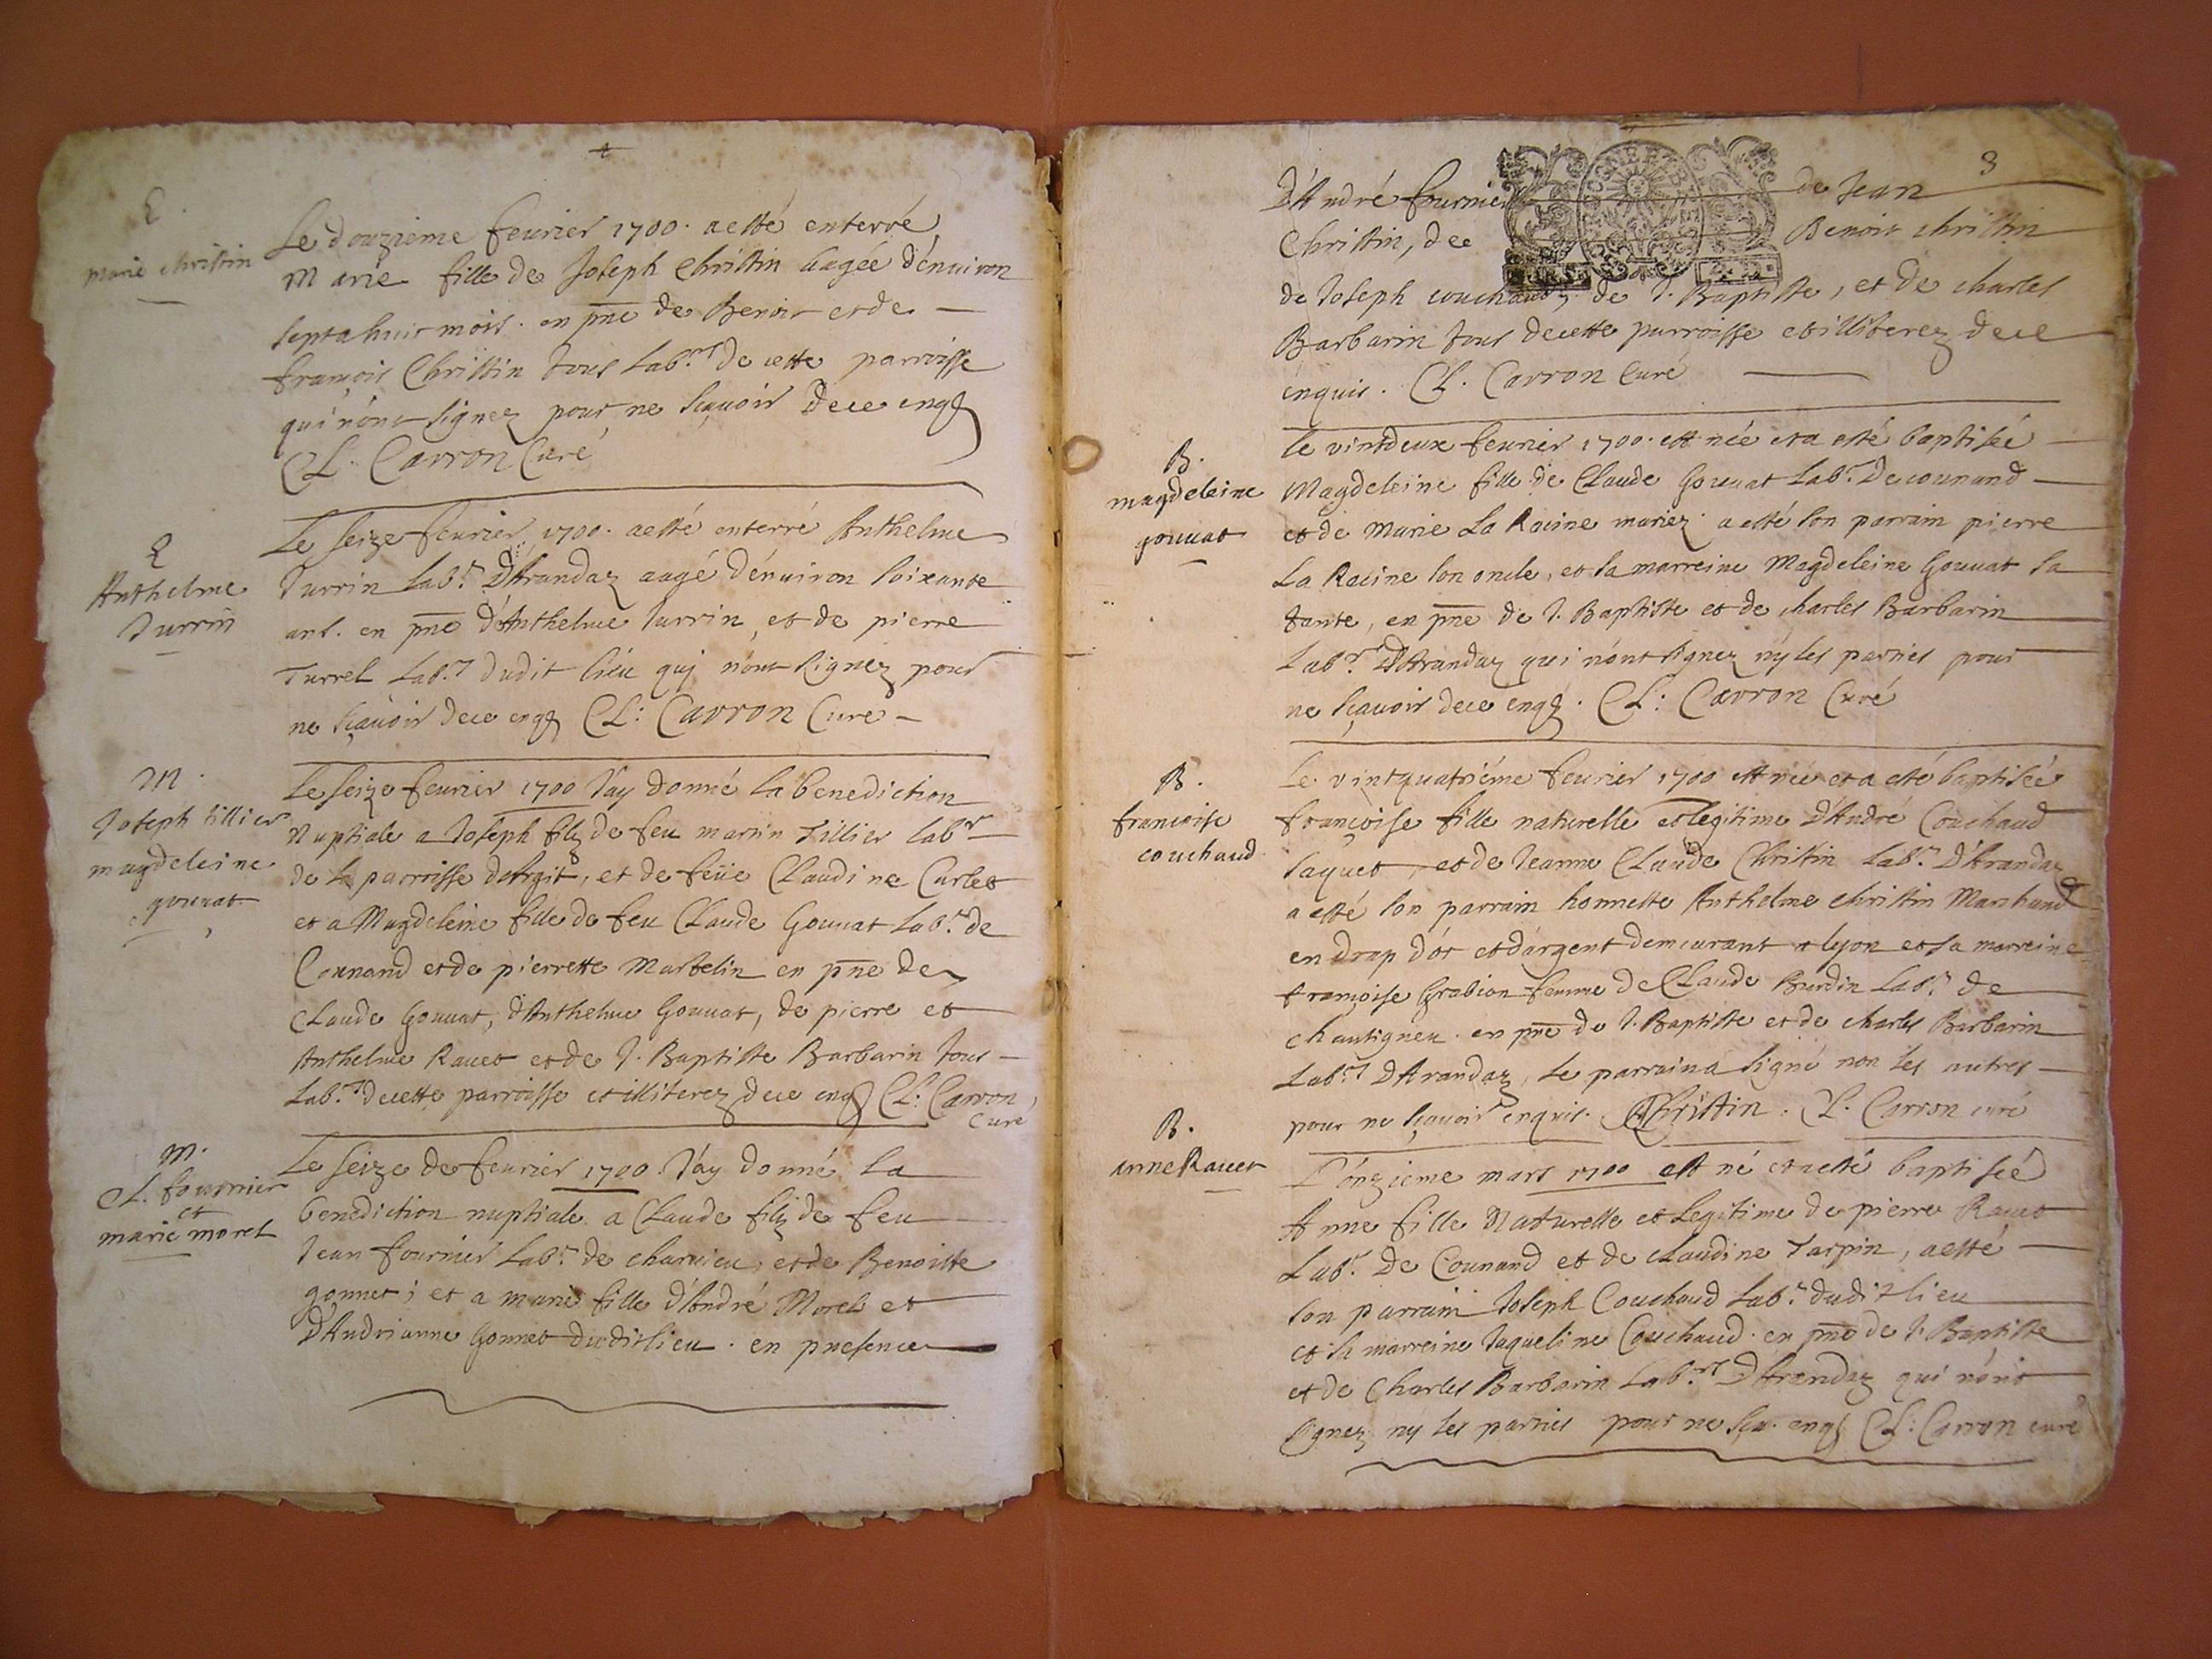 E
marie christin
Le douzieme feurier 1700. a esté enterré
Marie fille de Joseph Christin aagée d'enuiron
sept a huit mois. en pñce de Benoit et de
françois Christin tous Lab.rs de cette parroisse
qui n'ont signez pour ne sçauoir de ce enq
CL. Carron Curé
E
Anthelme
Jurrin
Le seize feurier 1700. a esté enterré Anthelme
Jurrin Lab.r D'Arandaz aagé d'enuiron soixante
ans. en pñce d'Anthelme Jurrin, et de pierre
Turrel Lab.rs dudit lieu quj n'ont signez pour
ne sçauoir de ce enq CL: Carron Curé
M.
Joseph tillier
magdeleine
gouuat
Le seize feurier 1700 J'ay donné la benediction
Nuptiale a Joseph filz de feu martin Tillier Labr
de la parroisse d'Argit, et de feüe Claudine Curlet
et a Magdeleine fille de feu Claude Gouuat Lab.r de
Counand et de pierrette Martelin en pñce de
Claude Gouuat, d'Anthelme Gouuat, de pierre et
Anthelme Rauet et de J. Baptiste Barbarin tous
Lab.rs de cette parroisse et illiterez de ce enq CL. Carron
Curé
M.
CL. fournier
et
marie morel
Le seize de feurier 1700. J'ay donné la
benediction nuptiale a Claude filz de feu
Jean fournier Lab.r de charuieu, et de Benoiste
gonnet; et a marie fille d'André Morel et
D'Andrianne Gonnet dudit lieu. en presence
3
D'André fournier de Jean
Christin, de Benoit christin
de Joseph couchaud, de J. Baptiste, et de charles
Barbarin tous de cette parroisse et illiterez de ce
enquis. CL. Carron Curé
B.
magdeleine
gouuat
Le vintdeux feurier 1700. est née et a esté baptisée
Magdeleine fille de Claude Gouuat Lab.r De counand
et de Marie La Racine mariez. a esté son parrain pierre
La Racine son oncle, et sa marreine Magdeleine Gouuat sa
tante, en pñce de J. Baptiste et de charles Barbarin
Lab.rs D'Arandaz qui n'ont signez ny les parties pour
ne sçauoir de ce enq. CL: Carron Curé
B.
francoise
couchaud
Le vintquatriéme feurier 1700 est née et a esté baptisée
françoise fille naturelle et legitime D'André Couchaud
Jaquet, et de Jeanne Claude Christin Lab.rs D'Arandaz
a esté son parrain honneste Anthelme christin Marchand
en drap d'or et d'argent demeurant a lyon et sa marreine
françoise Grabion femme de Claude Burdin Lab.r de
chantigneu. en pñce de J. Baptiste et de charles Barbarin
Lab.rs D'Arandaz, Le parrain a signé non les autres
pour ne sçauoir enquis. AChristin. CL. Carron curé
B.
anne Rauet
L'ónzieme mars 1700 est né et a esté baptisée
Anne fille Naturelle et Legitime de pierre Rauet
Lab.r De Counand et de claudine Tarpin, a esté
son parrain Joseph Couchaud Lab.r dudit lieu
et sa marreine Jaqueline Couchaud. en pñce de J. Baptiste
et de Charles Barbarin Lab.rs D'Arandaz qui n'ont
signez ny les parties pour ne sça. enq CL: Carron curé